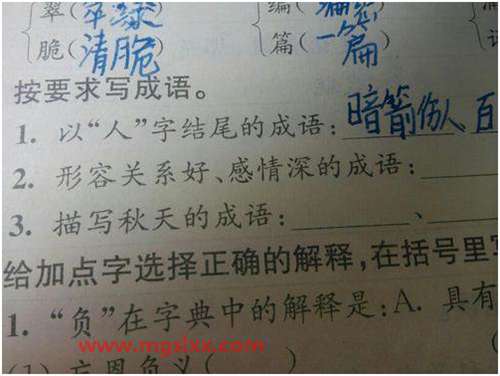 翠(翠绿)
脆(清脆) 篇(一篇)
按要求写成语。
1. 以“人”字结尾的成语:暗箭伤人、百
2. 形容关系好、感情深的成语:
3. 描写秋天的成语: 、
给加点字选择正确的解释,在括号里写
1. “负”在字典中的解释是:A. 具有
www.mgslxx.com
(1) 忘恩负义( )